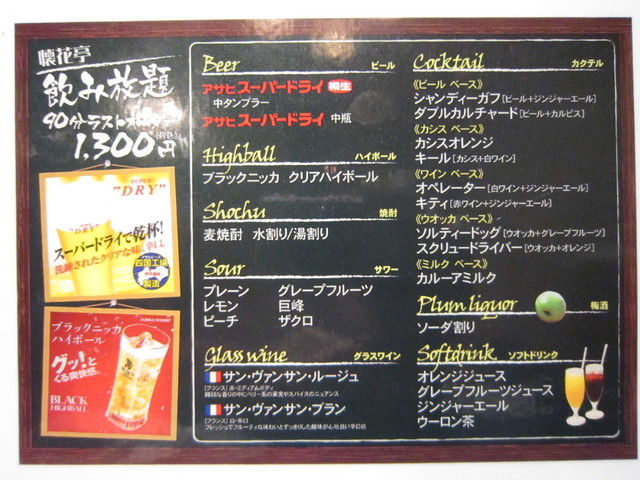 懐花亭
飲み放題
90分ラストオーダー
1,300円
(税込)
SUPER
"DRY"
スーパードライで乾杯!
洗練されたクリアな味、辛口。
四国工場
製造
ブラックニッカ
ハイボール
グッ!と
くる爽快感。
BLACK
HIGHBALL
Beer ビール
アサヒスーパードライ 樽生
中タンブラー
アサヒスーパードライ 中瓶
Highball ハイボール
ブラックニッカ クリアハイボール
Shochu 焼酎
麦焼酎 水割り/湯割り
Sour サワー
プレーン グレープフルーツ
レモン 巨峰
ピーチ ザクロ
Glass wine グラスワイン
サン・ヴァンサン・ルージュ
[フランス] 赤・ミディアムボディ
サン・ヴァンサン・ブラン
[フランス] 白・辛口
フレッシュでフルーティな味わいとすっきりした酸味が心地良い辛口白
Cocktail カクテル
《ビール ベース》
シャンディーガフ[ビール+ジンジャーエール]
ダブルカルチャード[ビール+カルピス]
《カシス ベース》
カシスオレンジ
キール[カシス+白ワイン]
《ワイン ベース》
オペレーター[白ワイン+ジンジャーエール]
キティ[赤ワイン+ジンジャーエール]
《ウオッカ ベース》
ソルティードッグ[ウオッカ+グレープフルーツ]
スクリュードライバー[ウオッカ+オレンジ]
《ミルク ベース》
カルーアミルク
Plum liquor 梅酒
ソーダ割り
Softdrink ソフトドリンク
オレンジジュース
グレープフルーツジュース
ジンジャーエール
ウーロン茶